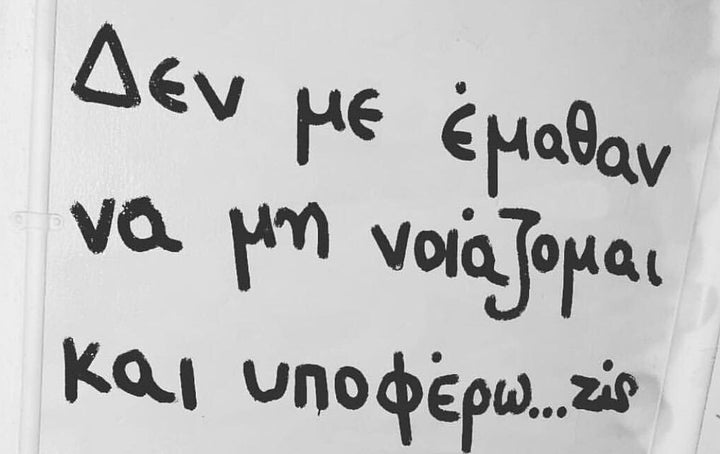 Δεν με έμαθαν
να μη νοιάζομαι
και υποφέρω...